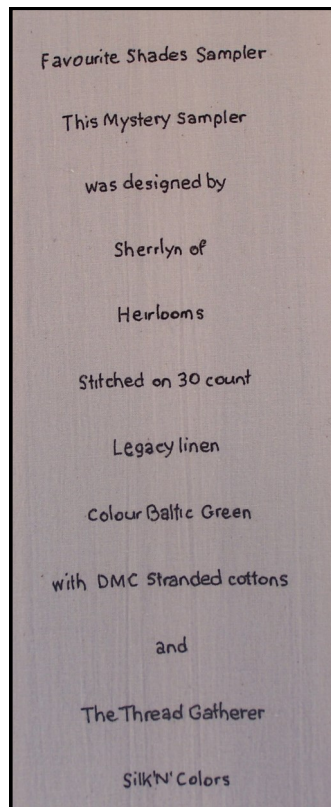 Favourite Shades Sampler
This Mystery Sampler
was designed by
Sherrlyn of
Heirlooms
Stitched on 30 count
Legacy linen
Colour Baltic Green
with DMC Stranded cottons
and
The Thread Gatherer
Silk'N' Colors